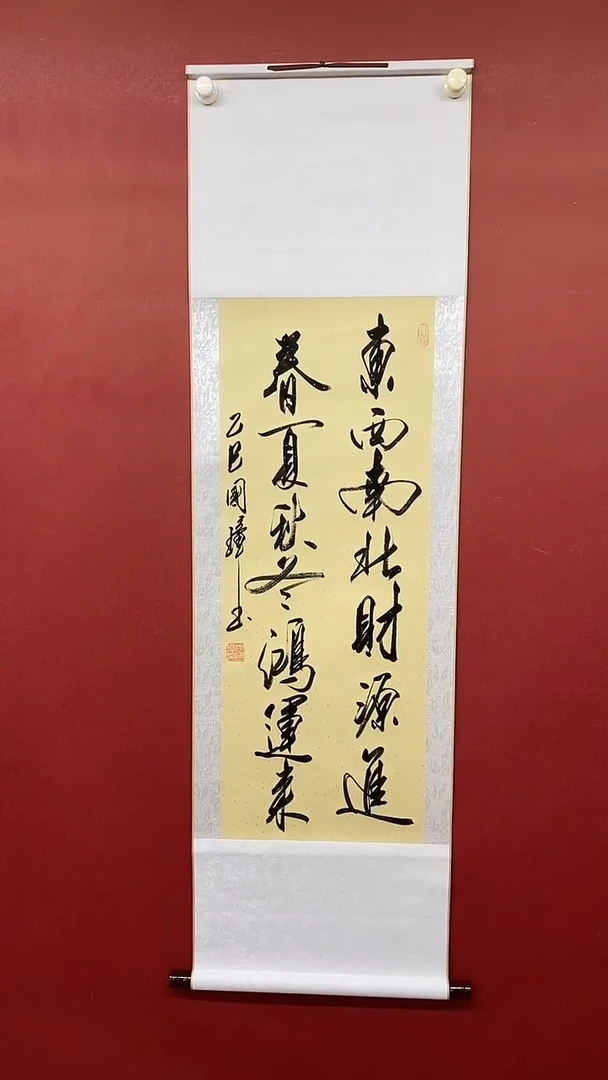 東西南北財源進
春夏秋冬鴻運来
乙巳國